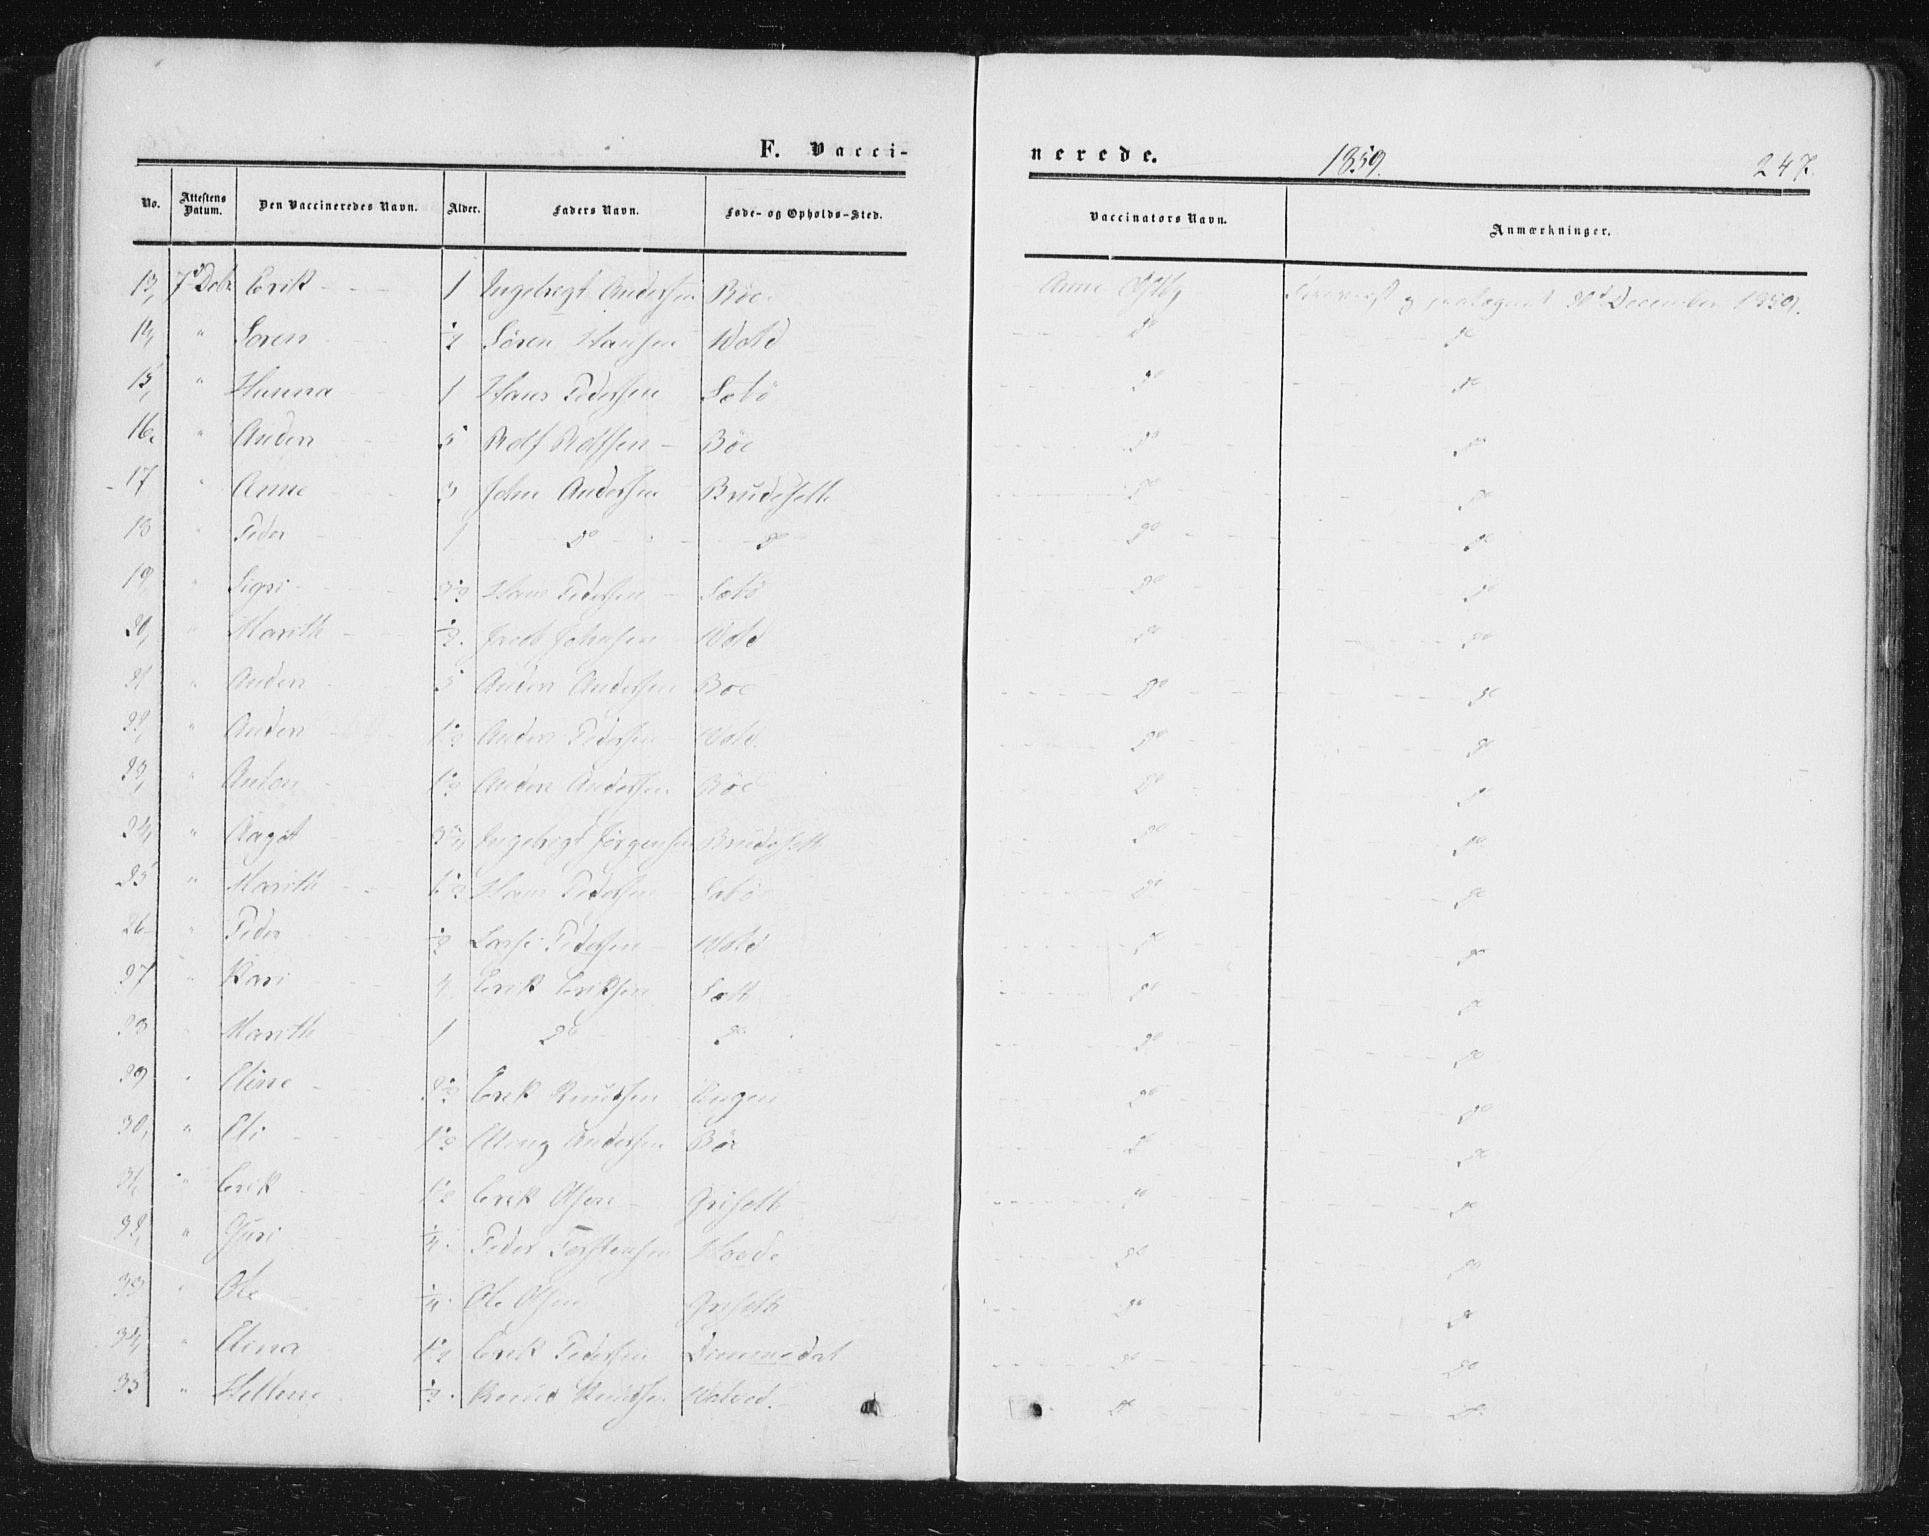 F. Vacci-
nerede. 1859. 247.
No. Attestens Datum. Den Vaccineredes Navn. Alder. Faders Navn. Føde- og Opholds-Sted. Vaccinators Navn. Anmærkninger.
13, 7de Debr Erik 1 Ingebregt Andersen Böe Anne December 1859.
14, " Soren ½ Sören Hansen Wold Do Do
15, " Hanna 1 Hans Pedersen Sæbö Do Do
16. " Anders 5 Rolf Rolfsen Böe Do Do
17 " Anne 3 John Andersen Brudesett Do Do
18 " Peder 1 Do Do Do Do
19, " Sigri Hans Pedersen Sæbö Do Do
20, " Marith ½ Jacob Johnsen Wold Do Do
21 " Anders 5 Anders Andersen Boe Do Do
22, " Anders 1½ Anders Pedersen Wold Do Do
23, " Anton 1½ Anders Andersen Böe Do Do
24, " Aagot Ingebregt Jörgensen Brudesett Do Do
25 " Marith 1½ Hans Pedersen Sæbö Do Do
26 " Peder ½ Lars Pedersen Wold Do Do
27 " Kari 4 Erik Eriksen Do Do
28 " Marith 1 Do Do Do Do
29 " Eline 2½ Erik Knudsen Engen Do Do
30, " Eli 1½ Andersen Böe Do Do
31, " Erik 1½ Erik Olsen Grisett Do Do
32, " Guri ¼ Peder Torstensen Do Do
33 " Ole ¼ Ole Olsen Grisett Do Do
34, " Elina 1½ Erik Pedersen Dimmedal Do Do
35 " Hellene ½ Knud Knudsen Do Do